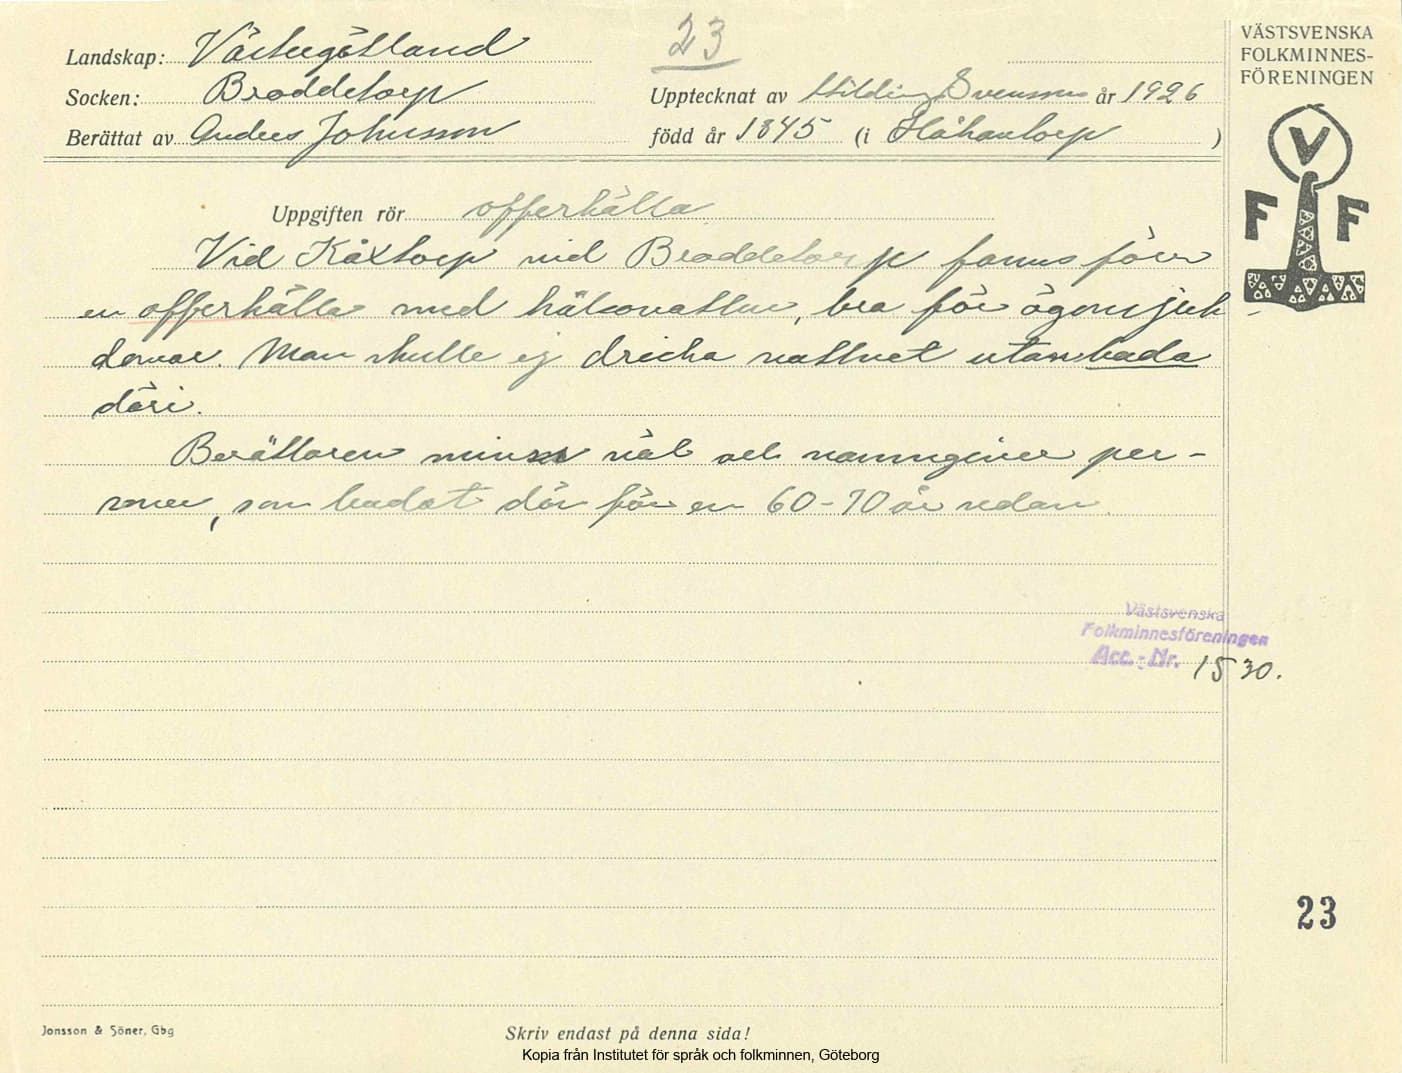 23
Landskap: Västergötland
Socken: Broddetorp
Berättat av Anders Johansson
Upptecknat av Hilding Svensson år 1926
född år 1845 (i Håkantorp)
VÄSTSVENSKA
FOLKMINNES-
FÖRENINGEN
V
F F
Uppgiften rör offerkälla
Vid Kåxtorp vid Broddetorp fanns förr
en offerkälla med hälsovatten, bra för ögonsjuk
domar. Man skulle ej dricka vattnet utan bada
däri.
Berättaren minns väl och namngiver per-
soner, som badat där för en 60-70 år sedan.
Västsvenska
Folkminnesföreningen
Acc.-Nr. 1530.
23
Jonsson & Söner, Gbg
Skriv endast på denna sida!
Kopia från Institutet för språk och folkminnen, Göteborg